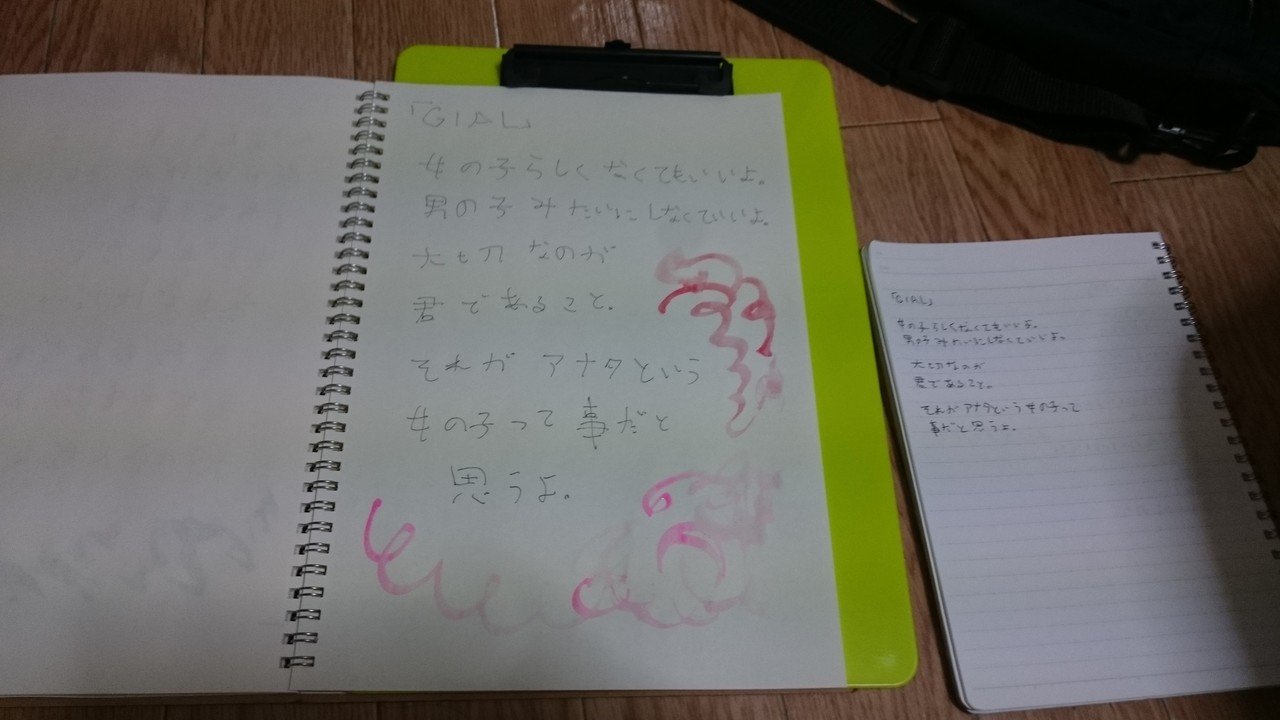 「GIAL」
女の子らしくなくてもいいよ。
男の子みたいにしなくていいよ。
大切なのが
君であること。
それがアナタという
女の子って事だと
思うよ。
「GIAL」
女の子らしくなくてもいいよ。
男の子みたいにしなくていいよ。
大切なのが
君であること。
それがアナタという女の子って
事だと思うよ。